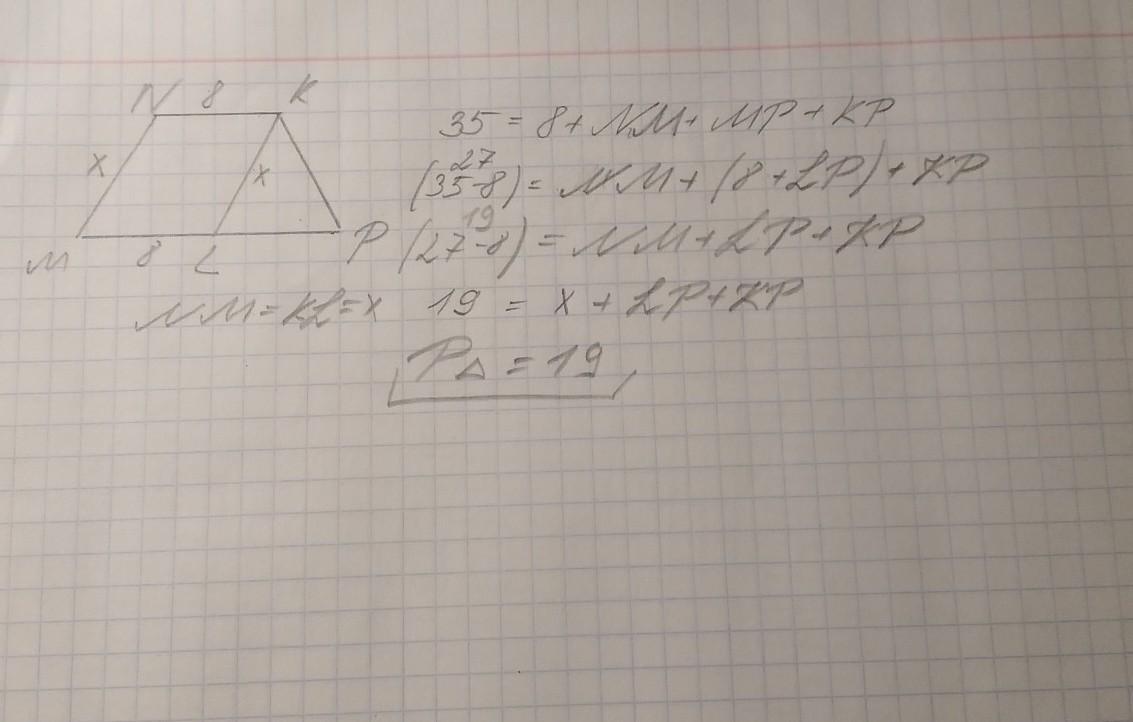 N 8 K
35 = 8 + NM + MP + KP
x x
27
(35-8) = NM + (8 + LP) + KP
19
(27-8) = NM + LP + KP
M 8 L P
NM = KL = x 19 = x + LP + KP
P△ = 19